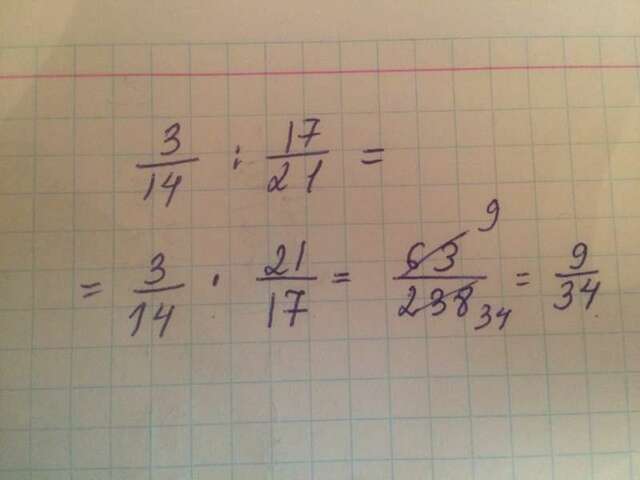 3/14 : 17/21 =
= 3/14 · 21/17 = 63/238 9 34 = 9/34